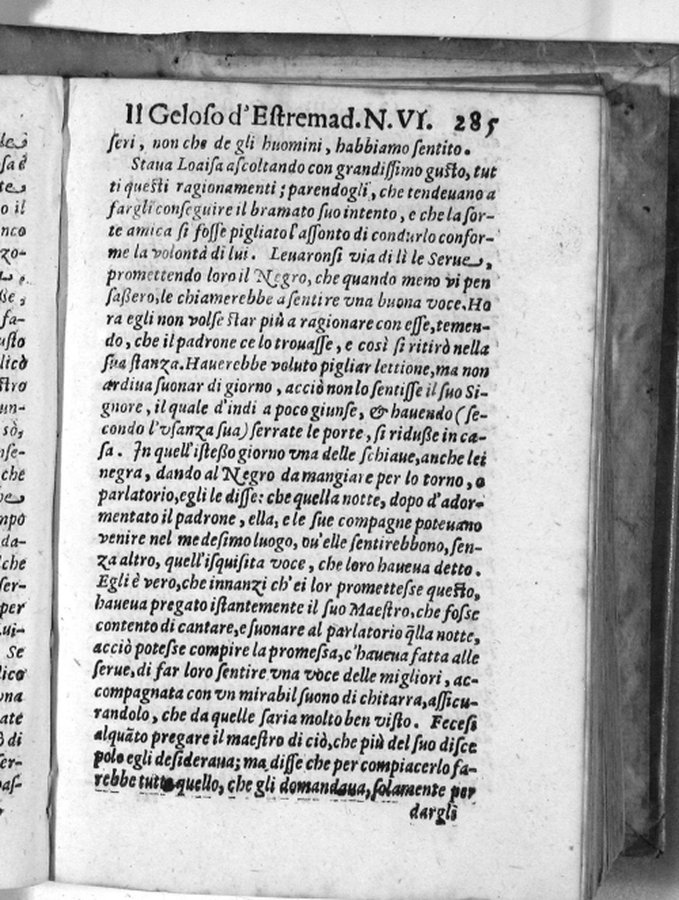 de
sa è
te
o il
nco
zo-
ße,
fa-
usto
lico
stro
un-
sò,
nse-
che
be
mpo
da-
lche
ser-
per
lui-
Se
lico
vna
ate
ò di
ser-
pas-
Il Geloso d'Estremad. N. VI. 285
seri, non che de gli huomini, habbiamo sentito.
Staua Loaisa ascoltando con grandissimo gusto, tut
ti questi ragionamenti; parendogli, che tendeuano a
fargli conseguire il bramato suo intento, e che la sor-
te amica si fosse pigliato l'assonto di condurlo confor-
me la volontà di lui. Leuaronsi via di lì le Serue,
promettendo loro il Negro, che quando meno vi pen
saßero, le chiamerebbe a sentire vna buona voce. Ho
ra egli non volse star più a ragionare con esse, temen-
do, che il padrone ce lo trouasse, e così si ritirò nella
sua stanza. Hauerebbe voluto pigliar lettione, ma non
ardiua suonar di giorno, acciò non lo sentisse il suo Si-
gnore, il quale d'indi a poco giunse, & hauendo (se-
condo l'vsanza sua) serrate le porte, si riduße in ca-
sa. In quell'isteßo giorno vna delle schiaue, anche lei
negra, dando al Negro da mangiare per lo torno, o
parlatorio, egli le disse: che quella notte, dopo d'ador-
mentato il padrone, ella, e le sue compagne poteuano
venire nel medesimo luogo, ou'elle sentirebbono, sen-
za altro, quell'isquisita voce, che loro haueua detto.
Egli è vero, che innanzi ch'ei lor promettesse questo,
haueua pregato istantemente il suo Maestro, che fosse
contento di cantare, e suonare al parlatorio q̃lla notte,
acciò potesse compire la promessa, c'haueua fatta alle
serue, di far loro sentire vna voce delle migliori, ac-
compagnata con vn mirabil suono di chitarra, assicu-
randolo, che da quelle saria molto ben visto. Fecesi
alquãto pregare il maestro di ciò, che più del suo disce
polo egli desideraua; ma disse che per compiacerlo fa-
rebbe tutto quello, che gli domandaua, solamente per
dargli